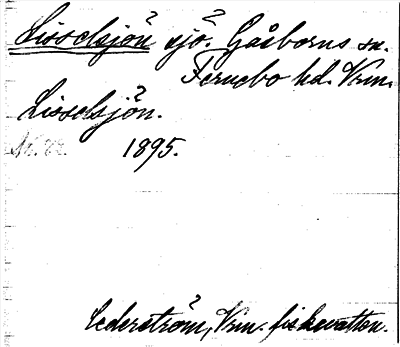 Lisselsjön sjö. Gåsborns sn.
Fernebo hd. Vrm.
Lisselsjön.
1895.
Cederström, Vrm. fiskevatten.